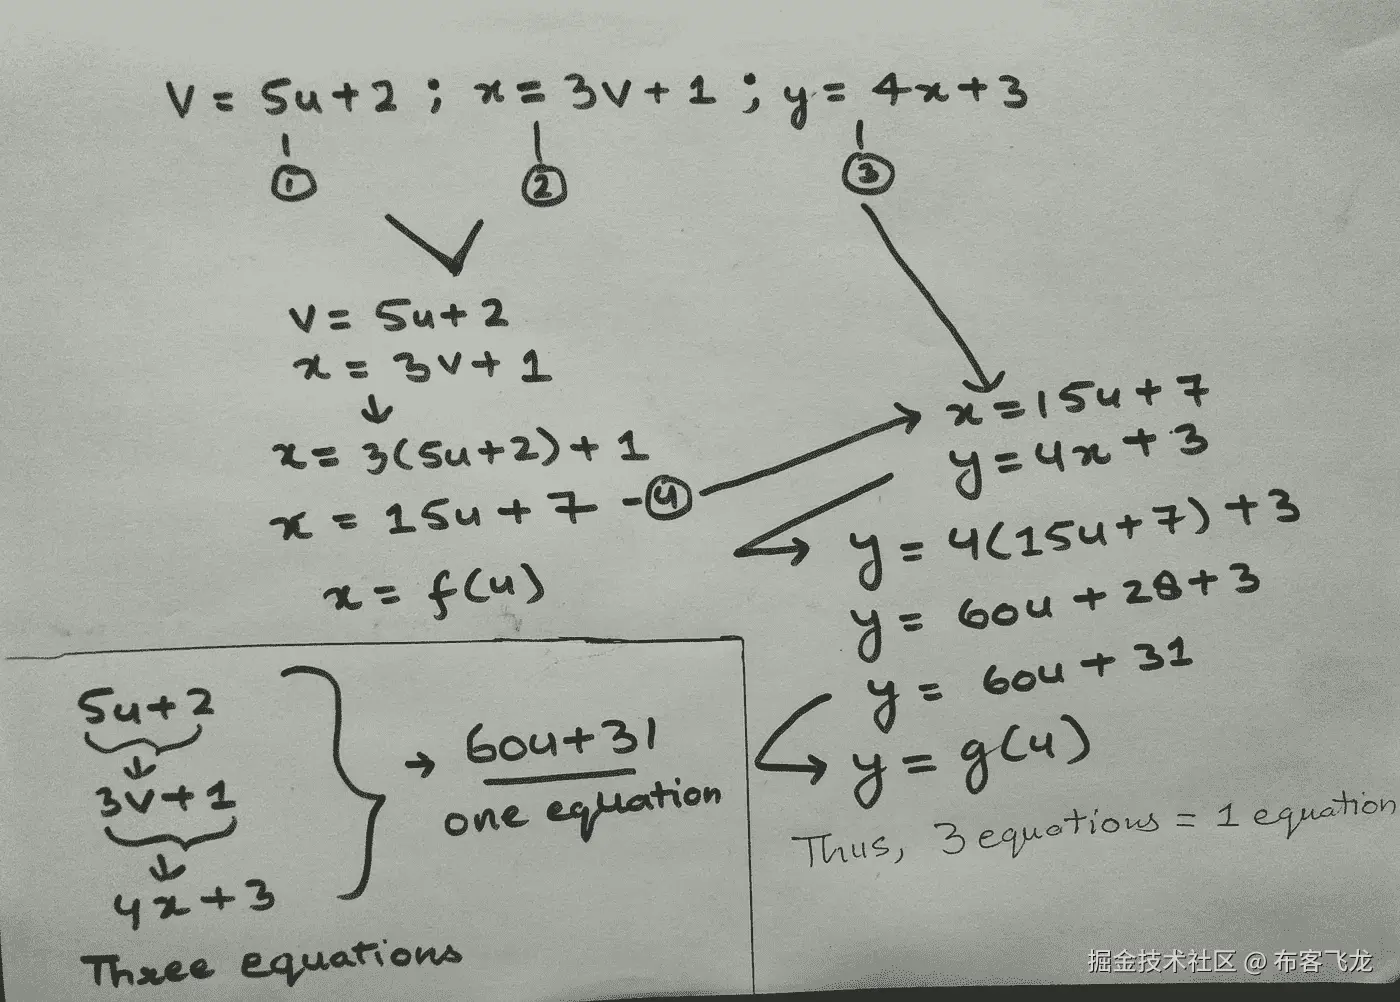 V = 5u+2 ; x = 3v+1 ; y = 4x+3
①
②
③
v = 5u+2
x = 3v+1
x = 3(5u+2)+1
x = 15u+7 -④
x = f(u)
x=15u+7
y=4x+3
y = 4(15u+7)+3
y = 60u+28+3
y = 60u+31
y = g(u)
Thus, 3 equations = 1 equation
5u+2
3v+1
4x+3
Three equations
→ 60u+31
one equation
掘金技术社区 @ 布客飞龙